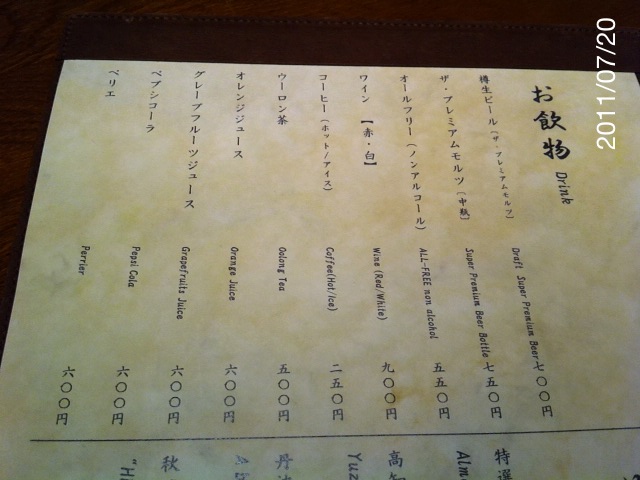 お飲物 Drink
樽生ビール（ザ・プレミアムモルツ） Draft Super Premium Beer 七〇〇円
ザ・プレミアムモルツ（中瓶） Super Premium Beer Bottle 七五〇円
オールフリー（ノンアルコール） ALL-FREE non alcohol 五五〇円
ワイン 【赤・白】 Wine (Red/White) 九〇〇円
コーヒー（ホット/アイス） Coffee(Hot/Ice) 二五〇円
ウーロン茶 Oolong Tea 五〇〇円
オレンジジュース Orange Juice 六〇〇円
グレープフルーツジュース Grapefruits Juice 六〇〇円
ペプシコーラ Pepsi Cola 六〇〇円
ペリエ Perrier 六〇〇円
特選
Alm
高知
Yuz
丹波
秋
"Hi
2011/07/20